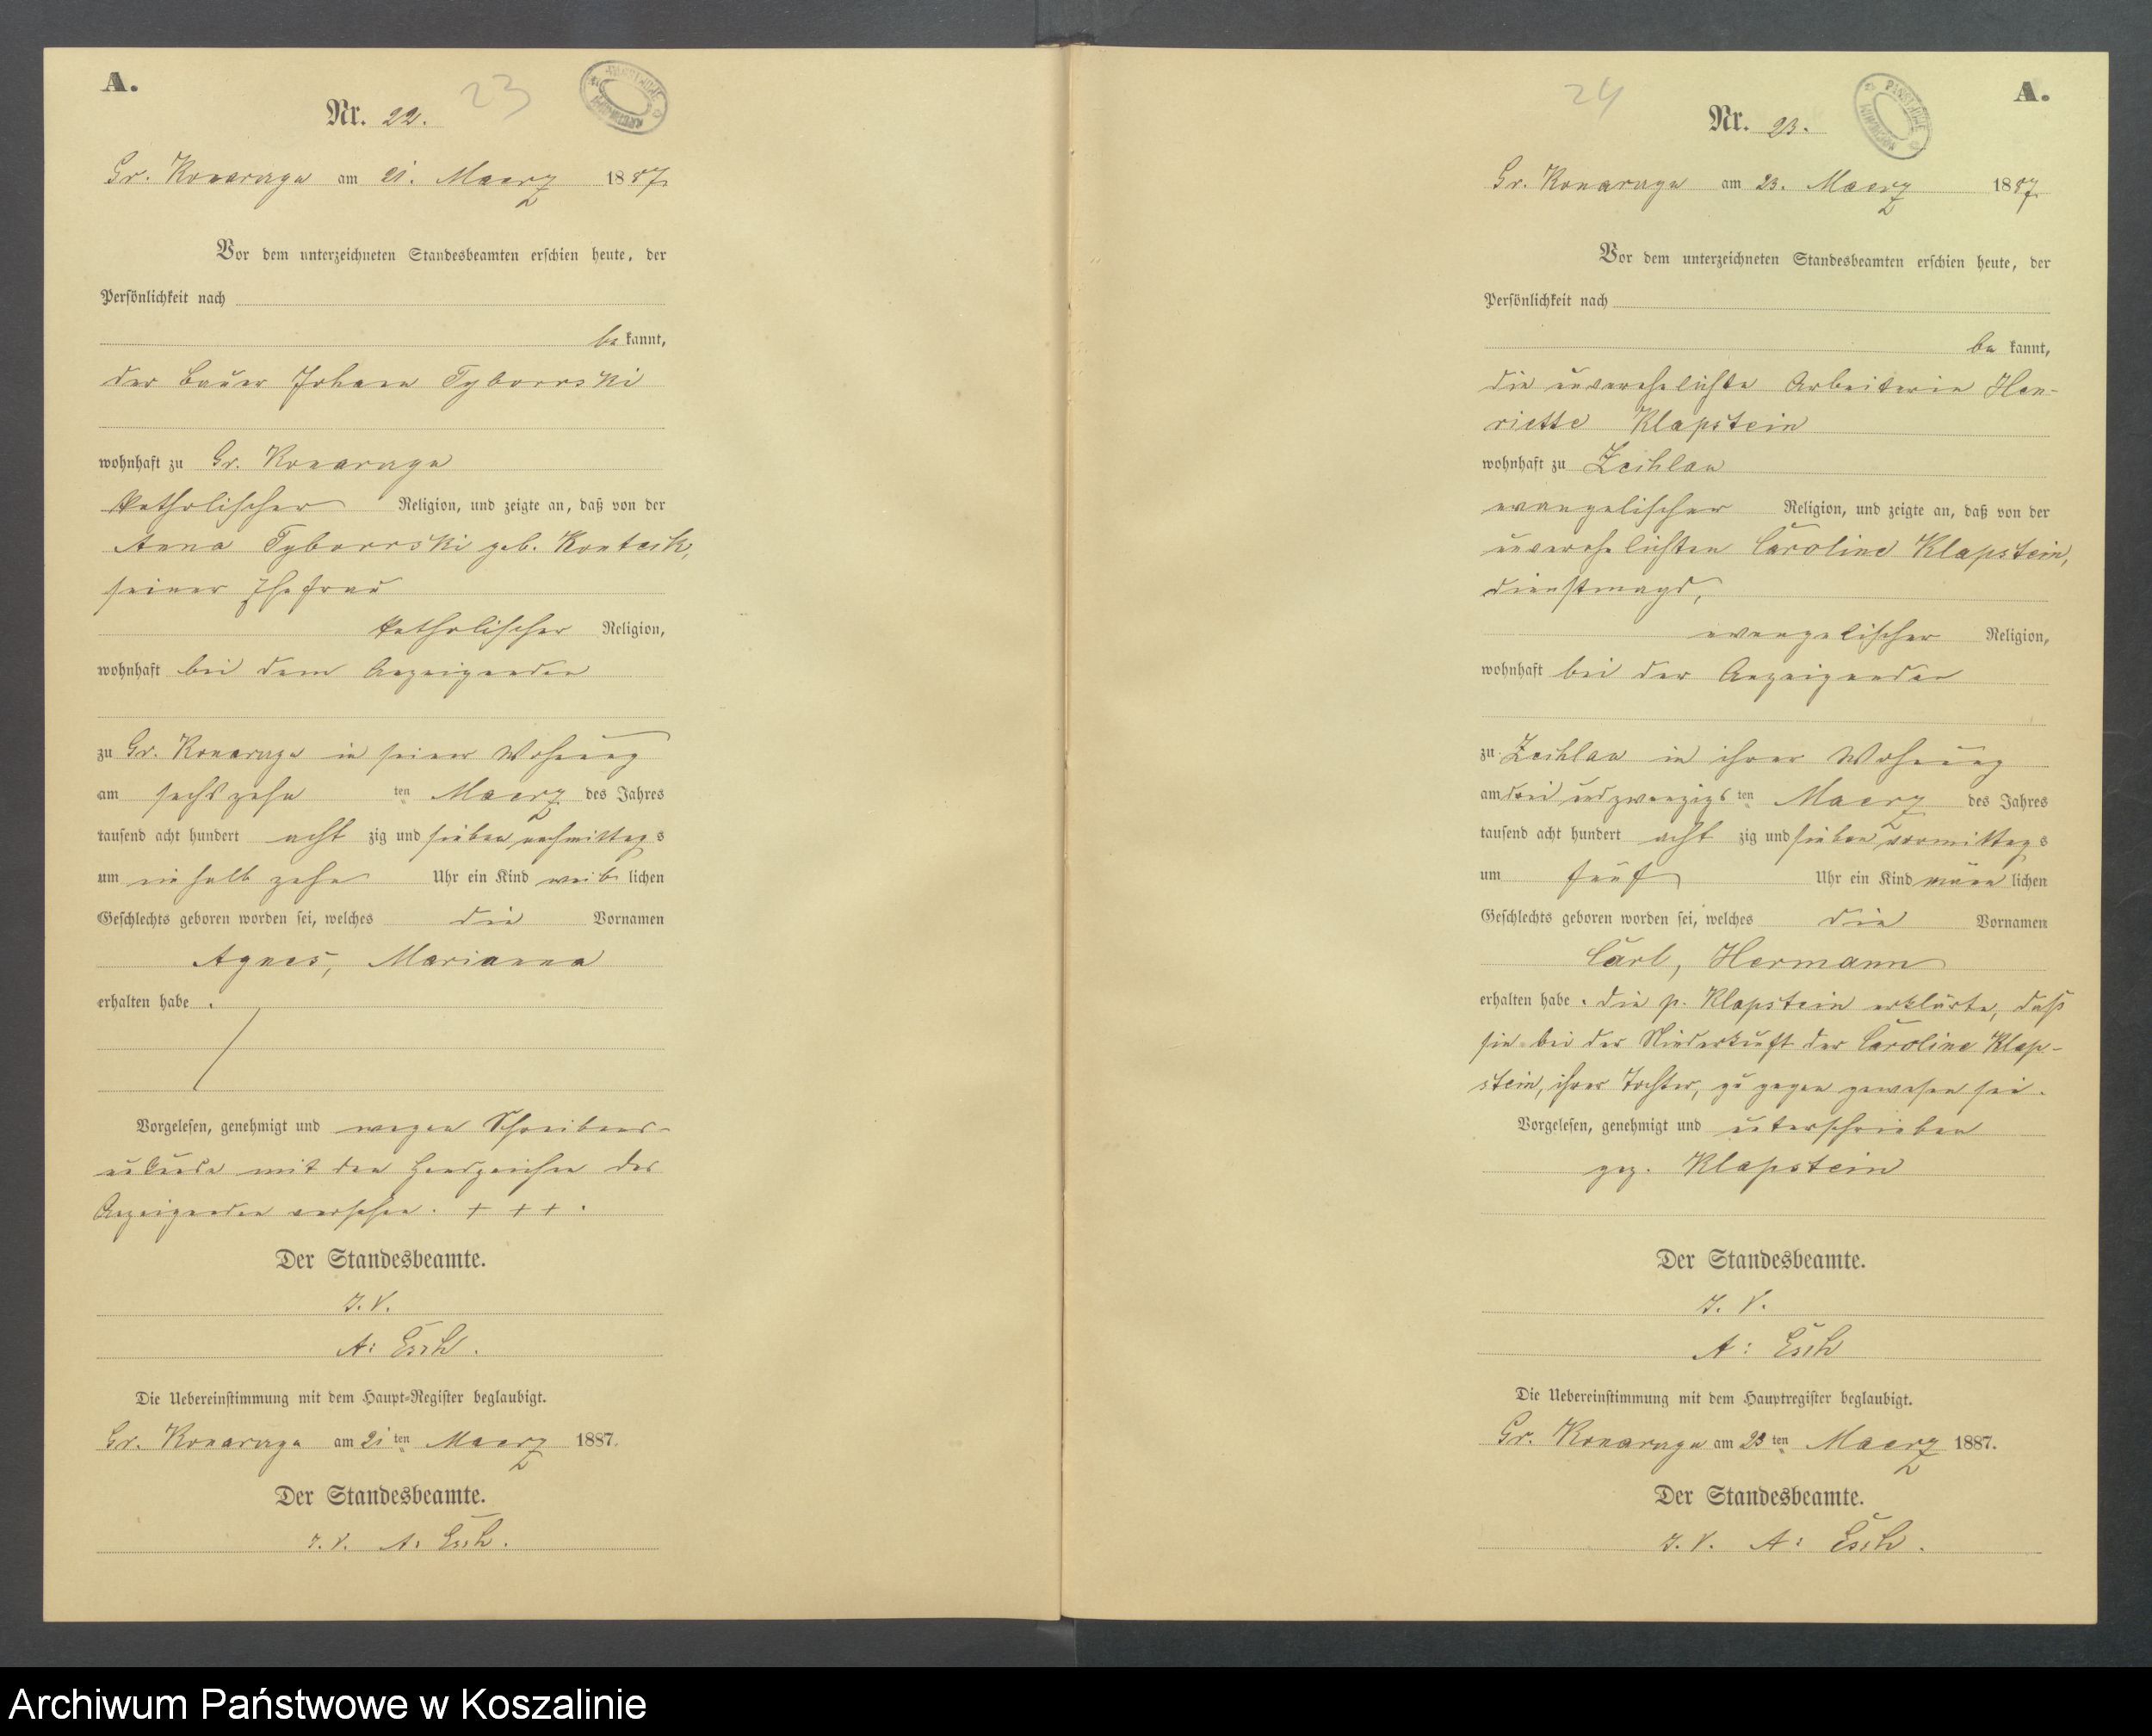 A.
Nr. 22.
23
Gr. Konarczyn am 21. Maerz 1887.
Vor dem unterzeichneten Standesbeamten erschien heute, der
Persönlichkeit nach
be kannt,
der Bauer Johann Tyborrski
wohnhaft zu Gr. Konarczyn
katholischer Religion, und zeigte an, daß von der
Anna Tyborrski geb.
seiner Ehefrau
katholischer Religion,
wohnhaft bei dem Anzeigenden
zu Gr. Konarczyn in seiner Wohnung
am sechszehn ten Maerz des Jahres
tausend acht hundert acht zig und sieben nachmittags
um ein halb zehn Uhr ein Kind weib lichen
Geschlechts geboren worden sei, welches die Vornamen
Agnes, Marianna
erhalten habe.
Vorgelesen, genehmigt und wegen Schreibens-
unkunde mit den Handzeichen des
Anzeigenden versehen. + + +.
Der Standesbeamte.
J. V.
A: Esch.
Die Uebereinstimmung mit dem Haupt-Register beglaubigt.
Gr. Konarczyn am 21 ten Maerz 1887.
Der Standesbeamte.
J. V. A: Esch.
A.
24
Nr. 23.
PAŃSTWOWE ARCHIWUM
Gr. Konarczyn am 23. Maerz 1887.
Vor dem unterzeichneten Standesbeamten erschien heute, der
Persönlichkeit nach
be kannt,
die unverehelichte Arbeiterin Hen-
riette Klapstein
wohnhaft zu Zechlau
evangelischer Religion, und zeigte an, daß von der
unverehelichten Caroline Klapstein,
Dienstmagd,
evangelischer Religion,
wohnhaft bei der Anzeigenden
zu Zechlau in ihrer Wohnung
am drei und zwanzigs ten Maerz des Jahres
tausend acht hundert acht zig und sieben vormittags
um fünf Uhr ein Kind männ lichen
Geschlechts geboren worden sei, welches die Vornamen
Carl, Hermann
erhalten habe. Die p. Klapstein erklärte, daß
sie bei der Niederkunft der Caroline Klap-
stein, ihrer Tochter, zugegen gewesen sei.
Vorgelesen, genehmigt und unterschrieben
gez. Klapstein
Der Standesbeamte.
J. V.
A: Esch
Die Uebereinstimmung mit dem Hauptregister beglaubigt.
Gr. Konarczyn am 23 ten Maerz 1887.
Der Standesbeamte.
J. V. A: Esch.
Archiwum Państwowe w Koszalinie